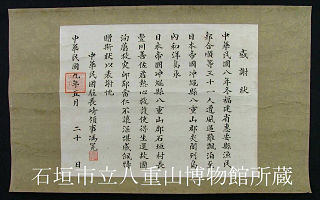 感謝狀
中華民國八年冬福建省惠安縣漁民
郭合順等三十一人遭風遇難飄泊至
日本帝國沖繩縣八重山郡尖閣列島
內和洋島承
日本帝國沖繩縣八重山郡石垣村長
豐川善佐君熱心救護使得生還故國
洵屬救災恤鄰當仁不讓深堪感佩特
贈斯狀以表謝忱
中華民國駐長崎領事馮冕
中華民國九年五月二十日
石垣市立八重山博物館所蔵